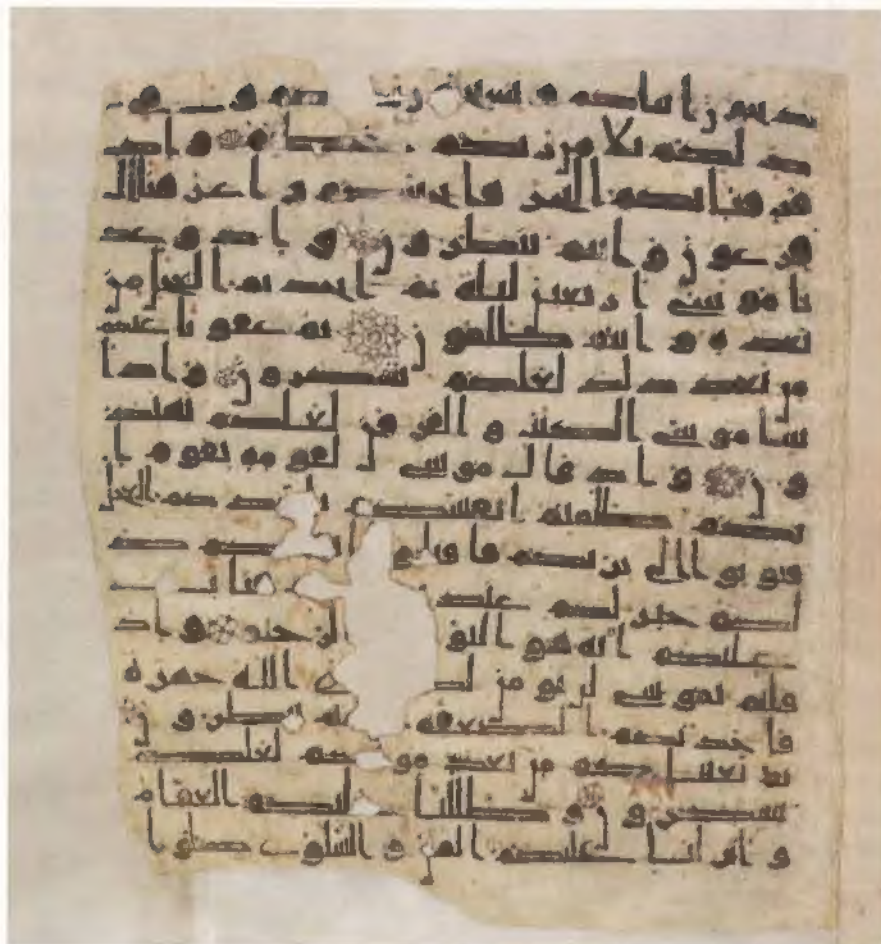 بحون ابناكم و يستحيون نسا كم و في ذ
لكم بلا من ربكم عظيم و اذ
فرقنا بكم البحر فانجينكم و اغرقنا ال
فرعون و انتم تنظرون و اذ وعد
نا موسى اربعين ليلة ثم اتخذتم العجل من
بعده و انتم ظلمون ثم عفونا عنكم
من بعد ذلك لعلكم تشكرون و اذ ا
تينا موسى الكتب و الفرقن لعلكم تهتد
ون و اذ قال موسى لقومه يقوم ا
نكم ظلمتم انفسكم باتخذكم العجل
فتوبوا الى بارئكم فاقتلوا انفسكم ذ
لكم خير لكم عند فتاب
عليكم انه هو التواب الرحيم و اذ
قلتم يموسى لن نومن لك الله جهرة
فاخذتكم الصعقة و انتم تنظرون
ثم بعثنكم من بعد موتكم لعلكم
تشكرون و ظللنا عليكم الغمام
و انزلنا عليكم المن و السلوى كلوا